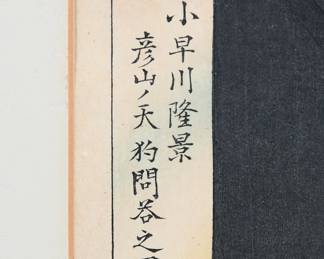 小早川隆景
彦山ノ天狗問答之